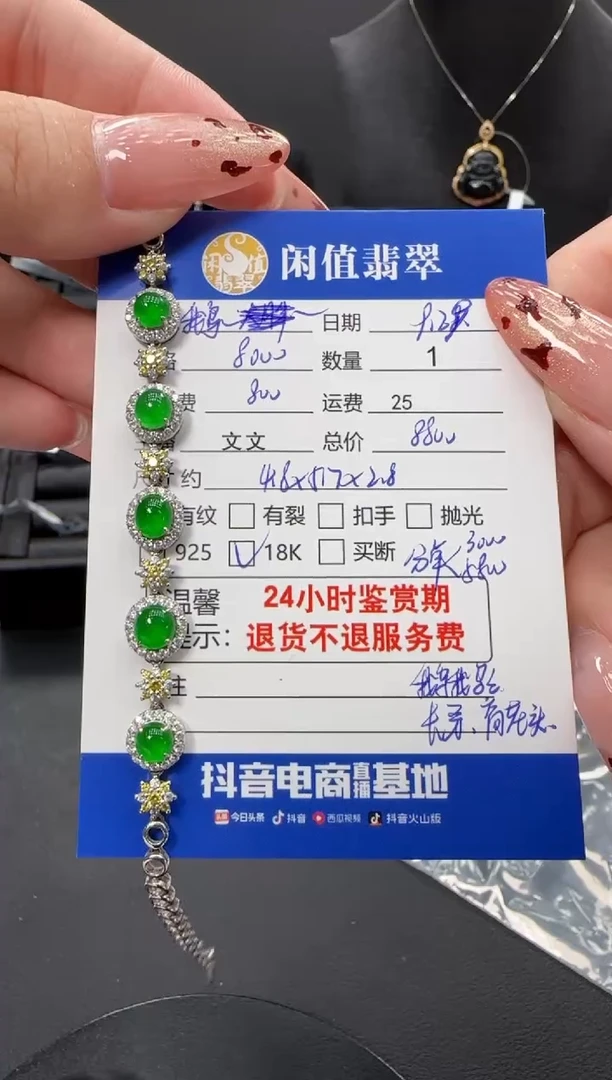 闲值
翡翠
闲值翡翠
日期
8000 数量 1
费 800 运费 25
文文 总价 8800
尺寸约 4.8x5.17x2.8
有纹 有裂 扣手 抛光
925 18K 买断 3000
5800
温馨 24小时鉴赏期
提示: 退货不退服务费
注
抖音电商直播基地
头条 今日头条 抖音 西瓜视频 抖音火山版